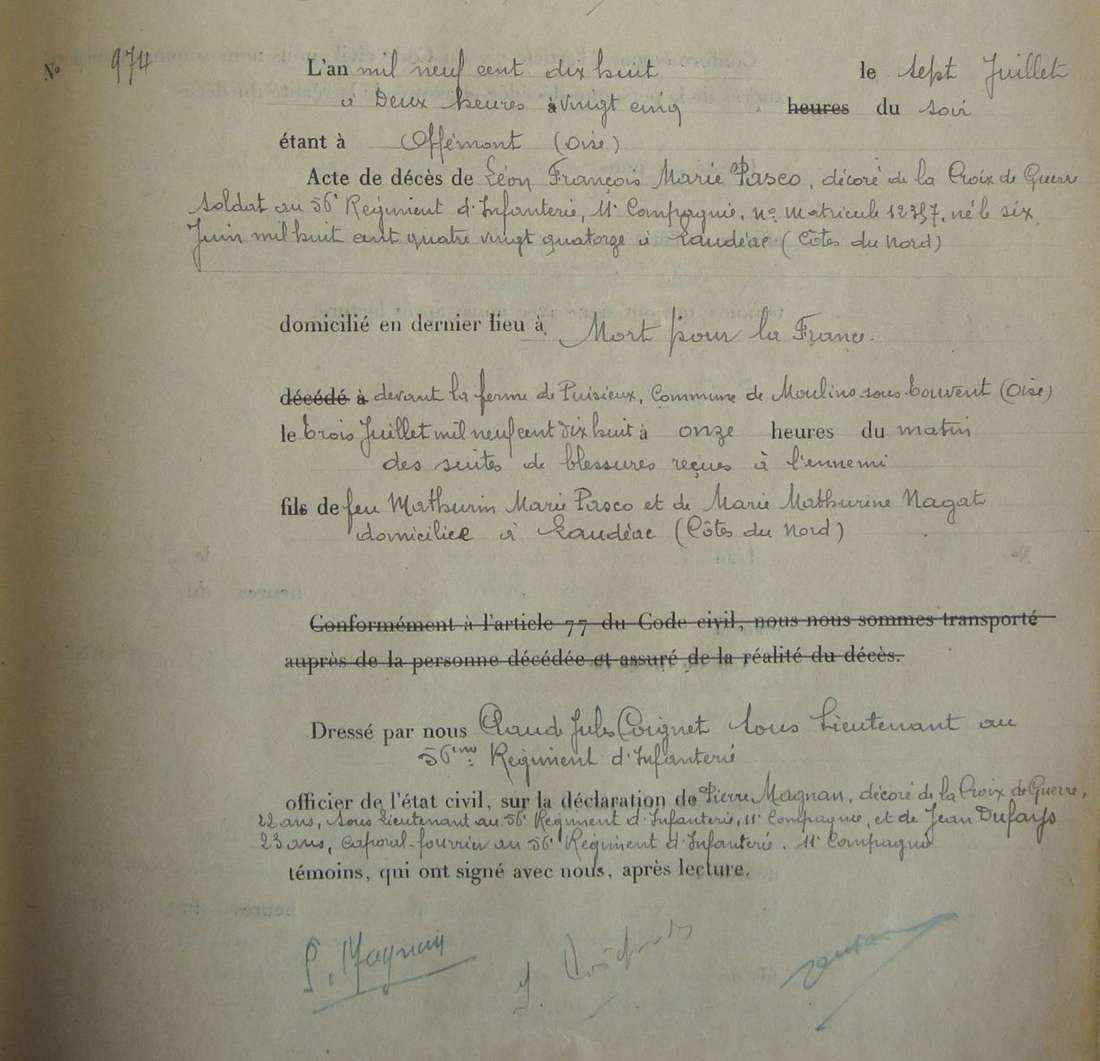 N° 974 L'an mil neuf cent dix huit le sept Juillet
à Deux heures à vingt cinq heures du soir
étant à Offémont (Oise)
Acte de décès de Léon François Marie Pasco, décoré de la Croix de Guerre
Soldat au 56e Régiment d'Infanterie, 11e Compagnie, no matricule 12357, né le six
Juin mil huit cent quatre vingt quatorze à Loudéac (Côtes du Nord)
domicilié en dernier lieu à Mort pour la France.
décédé à devant la ferme de Puisieux, Commune de Moulins sous Touvent (Oise)
le trois Juillet mil neuf cent dix huit à onze heures du matin
des suites de blessures reçues à l'ennemi
fils de feu Mathurin Marie Pasco et de Marie Mathurine Nagat
domiciliée à Loudéac (Côtes du Nord)
Conformément à l'article 77 du Code civil, nous nous sommes transporté
auprès de la personne décédée et assuré de la réalité du décès.
Dressé par nous Claude Jules Coignet Sous Lieutenant au
56me Régiment d'Infanterie
officier de l'état civil, sur la déclaration de Pierre Magnan, décoré de la Croix de Guerre,
22 ans, Sous Lieutenant au 56e Régiment d'Infanterie, 11e Compagnie, et de Jean Dufays
23 ans, Caporal-fourrier au 56e Régiment d'Infanterie. 11e Compagnie
témoins, qui ont signé avec nous, après lecture.
P. Magnan